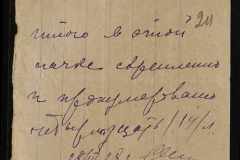 итого в этой 211
пачке скреплено
и пронумеровано
четырнадцать /14/ л.